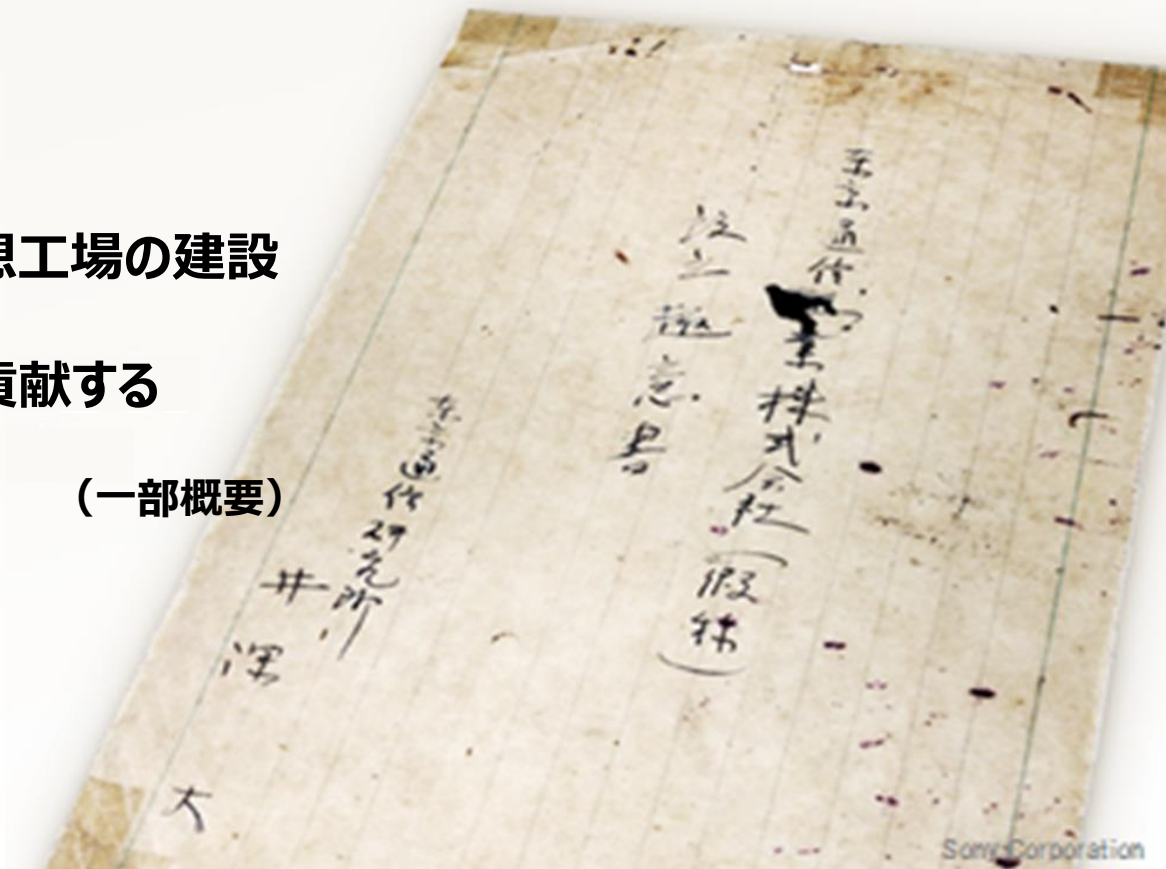 想工場の建設
貢献する
（一部概要）
東京通信業株式会社（假称）
設立趣意書
東京通信研究所
井深 大
Sony Corporation